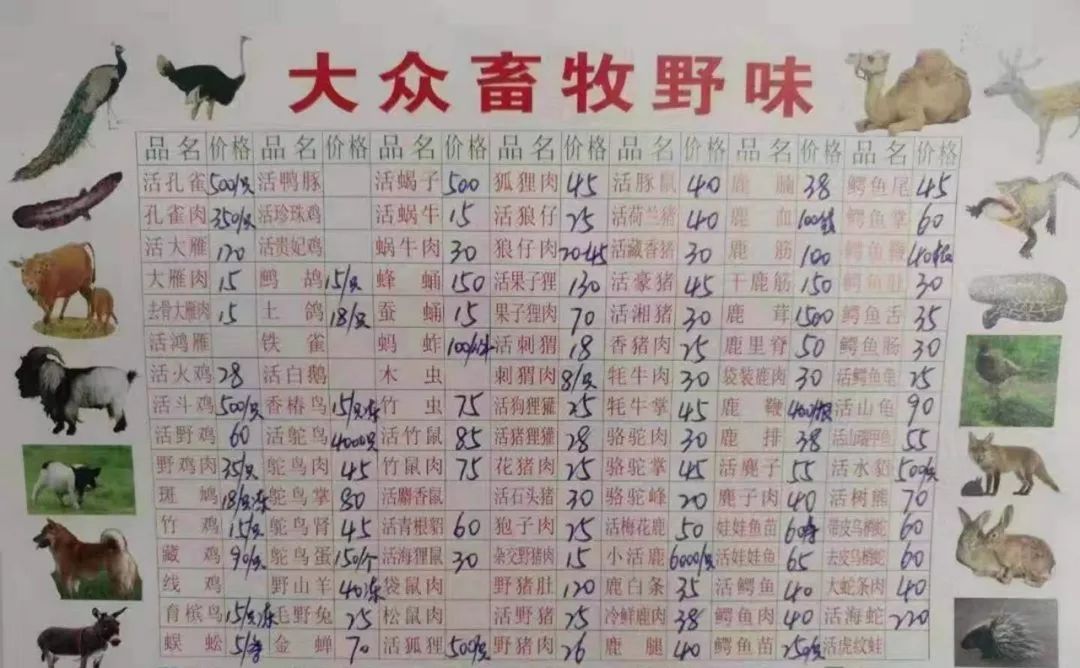 大众畜牧野味
品名 价格 品名 价格 品名 价格 品名 价格 品名 价格 品名 价格 品名 价格
活孔雀 500/只 活鸭豚 活蝎子 500 狐狸肉 45 活豚鼠 40 鹿脯 38 鳄鱼尾 45
孔雀肉 350/只 活珍珠鸡 活蜗牛 15 活狼仔 25 活荷兰猪 40 鹿血 100 鳄鱼掌 60
活大雁 120 活贵妃鸡 蜗牛肉 30 狼仔肉 20-45 活藏香猪 30 鹿筋 100 鳄鱼鞭 40
大雁肉 15 鹧鸪 15/只 蜂蛹 150 活果子狸 130 活豪猪 45 干鹿筋 150 鳄鱼肚 30
去骨大雁肉 15 土鸽 18/只 蚕蛹 15 果子狸肉 70 活湘猪 30 鹿茸 1500 鳄鱼舌 35
活鸿雁 铁雀 蚂蚱 活刺猬 18 香猪肉 25 鹿里脊 50 鳄鱼肠 30
活火鸡 28 活白鹅 木虫 刺猬肉 8/只 牦牛肉 30 袋装鹿肉 30 活鳄鱼龟 25
活斗鸡 500/只 香椿鸟 15/只冻 竹虫 75 活狗狸獾 25 牦牛掌 45 鹿鞭 活山龟 90
活野鸡 60 活鸵鸟 4000只 活竹鼠 85 活猪狸獾 28 骆驼肉 30 鹿排 38 活山瑞甲鱼 55
野鸡肉 35/只 鸵鸟肉 45 竹鼠肉 75 花猪肉 25 骆驼掌 45 活麂子 55 活水貂 500/只
斑鸠 18/只冻 鸵鸟掌 80 活麝香鼠 活石头猪 30 骆驼峰 20 麂子肉 40 活树熊 70
竹鸡 15/只 鸵鸟肾 45 活青根貂 60 狍子肉 25 活梅花鹿 50 娃娃鱼苗 60 带皮乌梢蛇 60
藏鸡 90/只 鸵鸟蛋 150/个 活海狸鼠 30 杂交野猪肉 15 小活鹿 6000/只 活娃娃鱼 65 去皮乌梢蛇 60
线鸡 野山羊 40冻 袋鼠肉 野猪肚 120 鹿白条 35 活鳄鱼 40 大蛇条肉 40
育槟鸟 15/只冻 毛野兔 25 松鼠肉 活野猪 25 冷鲜鹿肉 38 鳄鱼肉 40 活海蛇 220
蜈蚣 金蝉 70 活狐狸 500/只 野猪肉 26 鹿腿 40 鳄鱼苗 250/只 活虎纹蛙